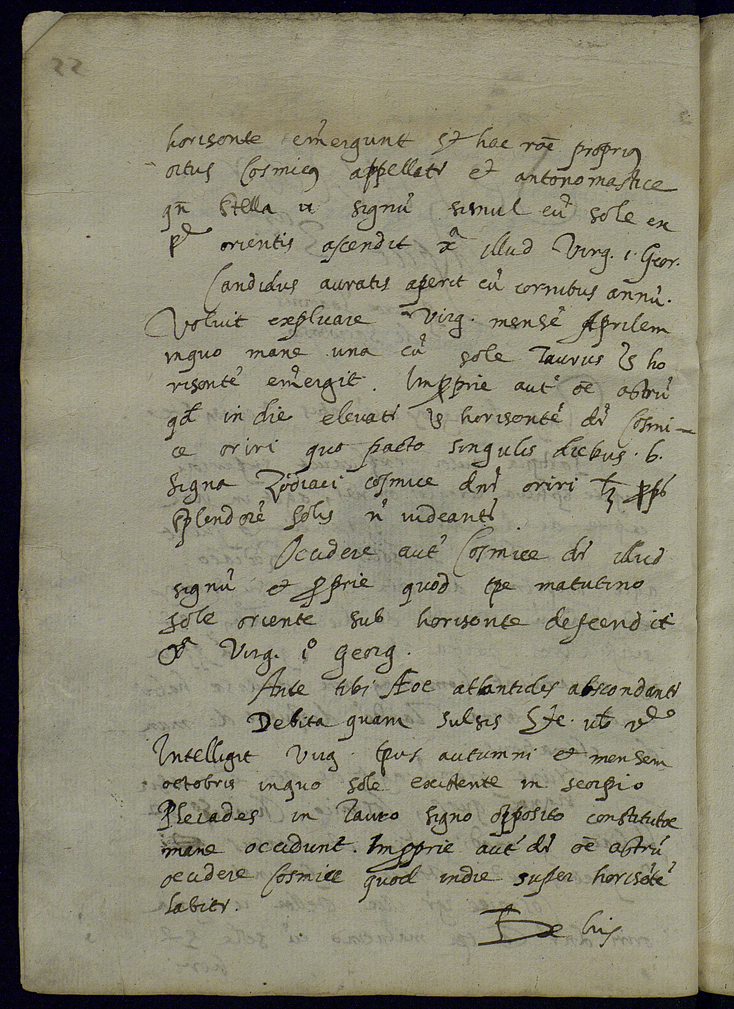 22
horisonte em̃ergunt et hac rõe propriq
ortus Cosmicq appellatr et antonomastice
qñ Stella ɫ signũ simul cũ sole ex
orientis ascendit illud Virg. i. Geor.
Candidus auratis aperit cũ cornibus annũ.
Voluit explicare Virg. mensẽ Aprilem
inquo mane una cũ sole Taurus ho
risontẽ em̃ergit. Improprie aut oẽ astrũ
qd in die elevatr horisontẽ dr Cosmi-
ce oriri quo pacto singulis diebus .6.
signa Zodiaci cosmice dnr oriri
splendorẽ solis ñ videantr
Occidere aut Cosmice dr illud
signũ et proprie quod tpe matutino
sole oriente sub horisonte descendit
Virg. i° Georg.
Ante tibi Æoe atlantides abscondantr
Debita quam sulcis
Intelligit Virg. tpus autumni et mensem
octobris inquo sole existente in scorpio
Pleiades in Tauro signo opposito constitutæ
mane occidunt. Improprie aut dr oẽ astrũ
occidere Cosmice quod indie super horisõtẽ
labitr.
De his